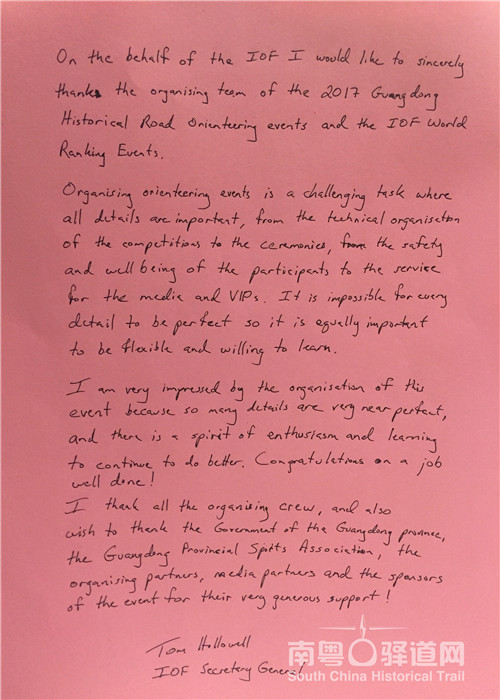 On the behalf of the IOF I would like to sincerely
thank the organising team of the 2017 Guangdong
Historical Road Orienteering events and the IOF World
Ranking Events.
Organising orienteering events is a challenging task where
all details are important, from the technical organisation
of the competitions to the ceremonies, from the safety
and well being of the participants to the service
for the media and VIPs. It is impossible for every
detail to be perfect so it is equally important
to be flexible and willing to learn.
I am very impressed by the organisation of this
event because so many details are very near perfect,
and there is a spirit of enthusiasm and learning
to continue to do better. Congratulations on a job
well done!
I thank all the organising crew, and also
wish to thank the Government of the Guangdong province,
the Guangdong Provincial Sports Association, the
organising partners, media partners and the sponsors
of the event for their very generous support!
Tom Hollowell
IOF Secretary General
南粤驿道网
South China Historical Trail